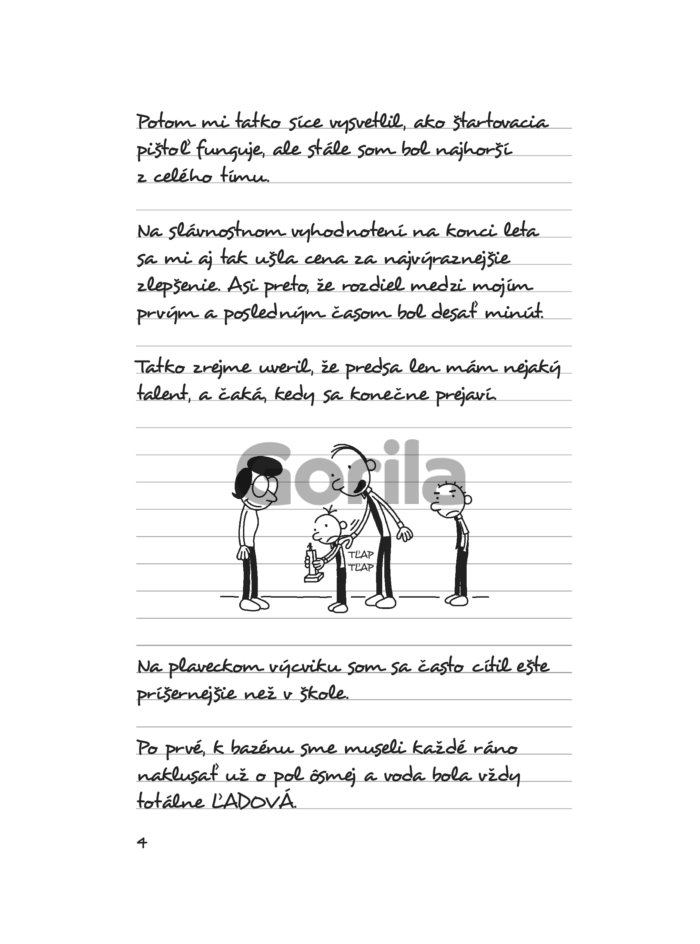 Potom mi tatko síce vysvetlil, ako štartovacia
pištoľ funguje, ale stále som bol najhorší
z celého tímu.
Na slávnostnom vyhodnotení na konci leta
sa mi aj tak ušla cena za najvýraznejšie
zlepšenie. Asi preto, že rozdiel medzi mojím
prvým a posledným časom bol desať minút.
Tatko zrejme uveril, že predsa len mám nejaký
talent, a čaká, kedy sa konečne prejaví.
Gorila
TĽAP
TĽAP
Na plaveckom výcviku som sa často cítil ešte
príšernejšie než v škole.
Po prvé, k bazénu sme museli každé ráno
naklusať už o pol ôsmej a voda bola vždy
totálne ĽADOVÁ.
4